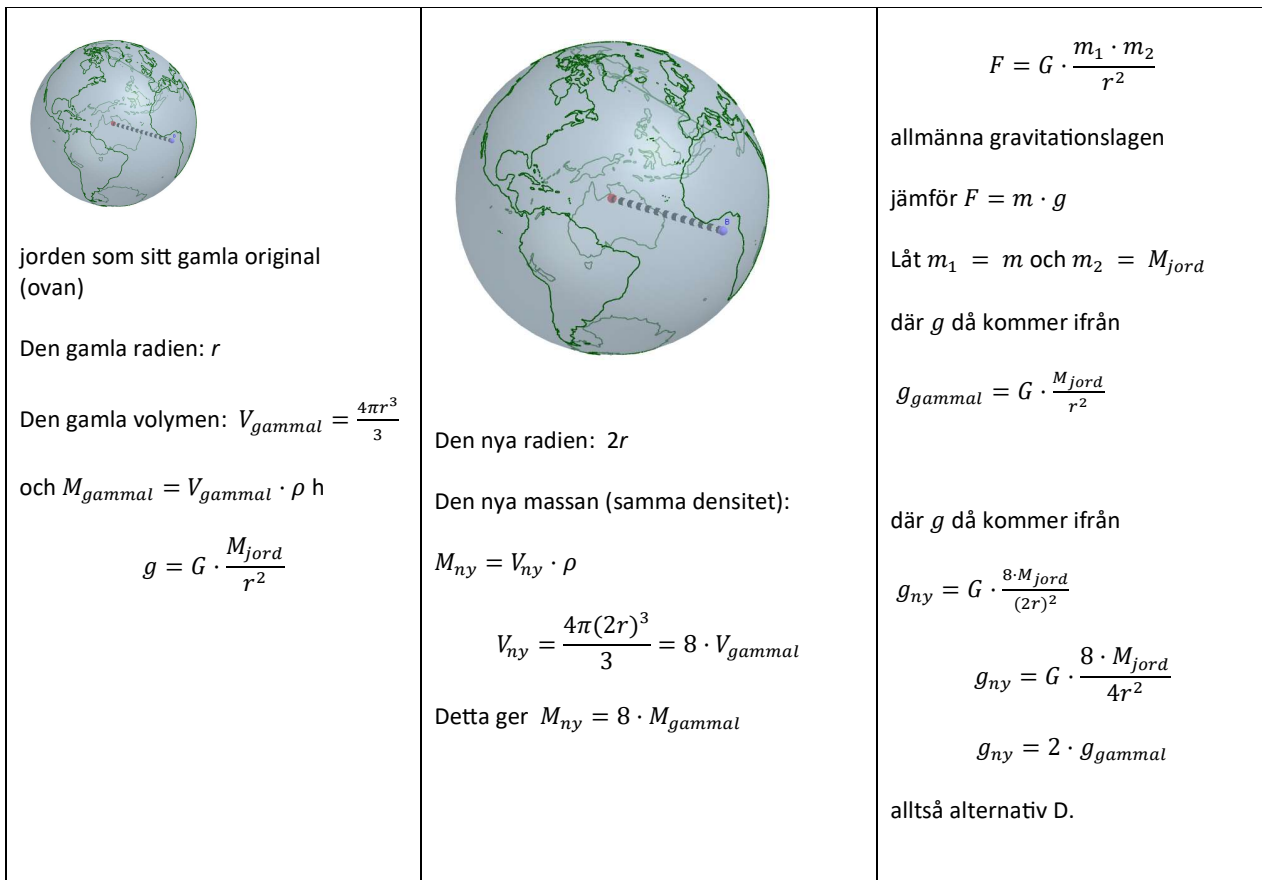 jorden som sitt gamla original
(ovan)
Den gamla radien: r
Den gamla volymen: V_{gammal} = \frac{4πr^3}{3}
och M_{gammal} = V_{gammal} · ρ h
g = G · \frac{M_{jord}}{r^2}
B
Den nya radien: 2r
Den nya massan (samma densitet):
M_{ny} = V_{ny} · ρ
V_{ny} = \frac{4π(2r)^3}{3} = 8 · V_{gammal}
Detta ger M_{ny} = 8 · M_{gammal}
F = G · \frac{m_1 · m_2}{r^2}
allmänna gravitationslagen
jämför F = m · g
Låt m_1 = m och m_2 = M_{jord}
där g då kommer ifrån
g_{gammal} = G · \frac{M_{jord}}{r^2}
där g då kommer ifrån
g_{ny} = G · \frac{8·M_{jord}}{(2r)^2}
g_{ny} = G · \frac{8 · M_{jord}}{4r^2}
g_{ny} = 2 · g_{gammal}
alltså alternativ D.